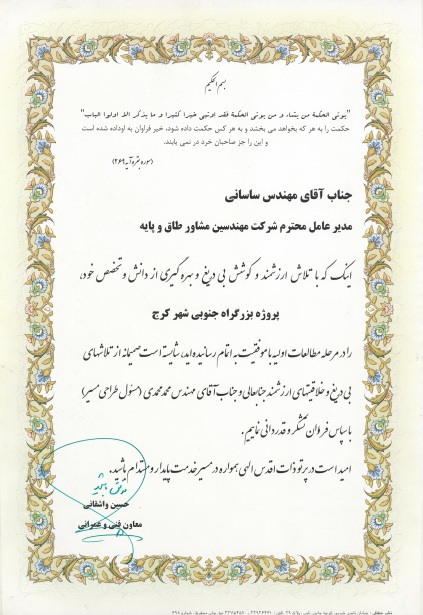 بسم الحکیم
"یوتی الحکمة من یشاء و من یوتی الحکمة فقد اوتیی خیرا کثیرا و ما یذکر الا اولوا الباب"
حکمت را به هر که بخواهد می بخشد و به هر کس حکمت داده شود، خیر فراوان به اوداده شده است
و این را جز صاحبان خرد در نمی یابند.
(سوره بقره آیه ۲۶۹)
جناب آقای مهندس ساسانی
مدیر عامل محترم شرکت مهندسین مشاور طاق و پایه
اینک که با تلاش ارزشمند و کوشش بی دریغ و بهره گیری از دانش و تخصص خود،
پروژه بزرگراه جنوبی شهر کرج
را در مرحله مطالعات اولیه با موفقیت به اتمام رسانیده اید، شایسته است صمیمانه از تلاشهای
بی دریغ و خلاقیتهای ارزشمند جنابعالی و جناب آقای مهندس محمد محمدی (مسئول طراحی مسیر)
با سپاس فراوان تشکر و قدردانی نماییم.
امید است در پرتو ذات اقدس الهی همواره در مسیر خدمت پایدار و مستدام باشید.
موفق باشید
حسین واشقانی
معاون فنی و عمرانی